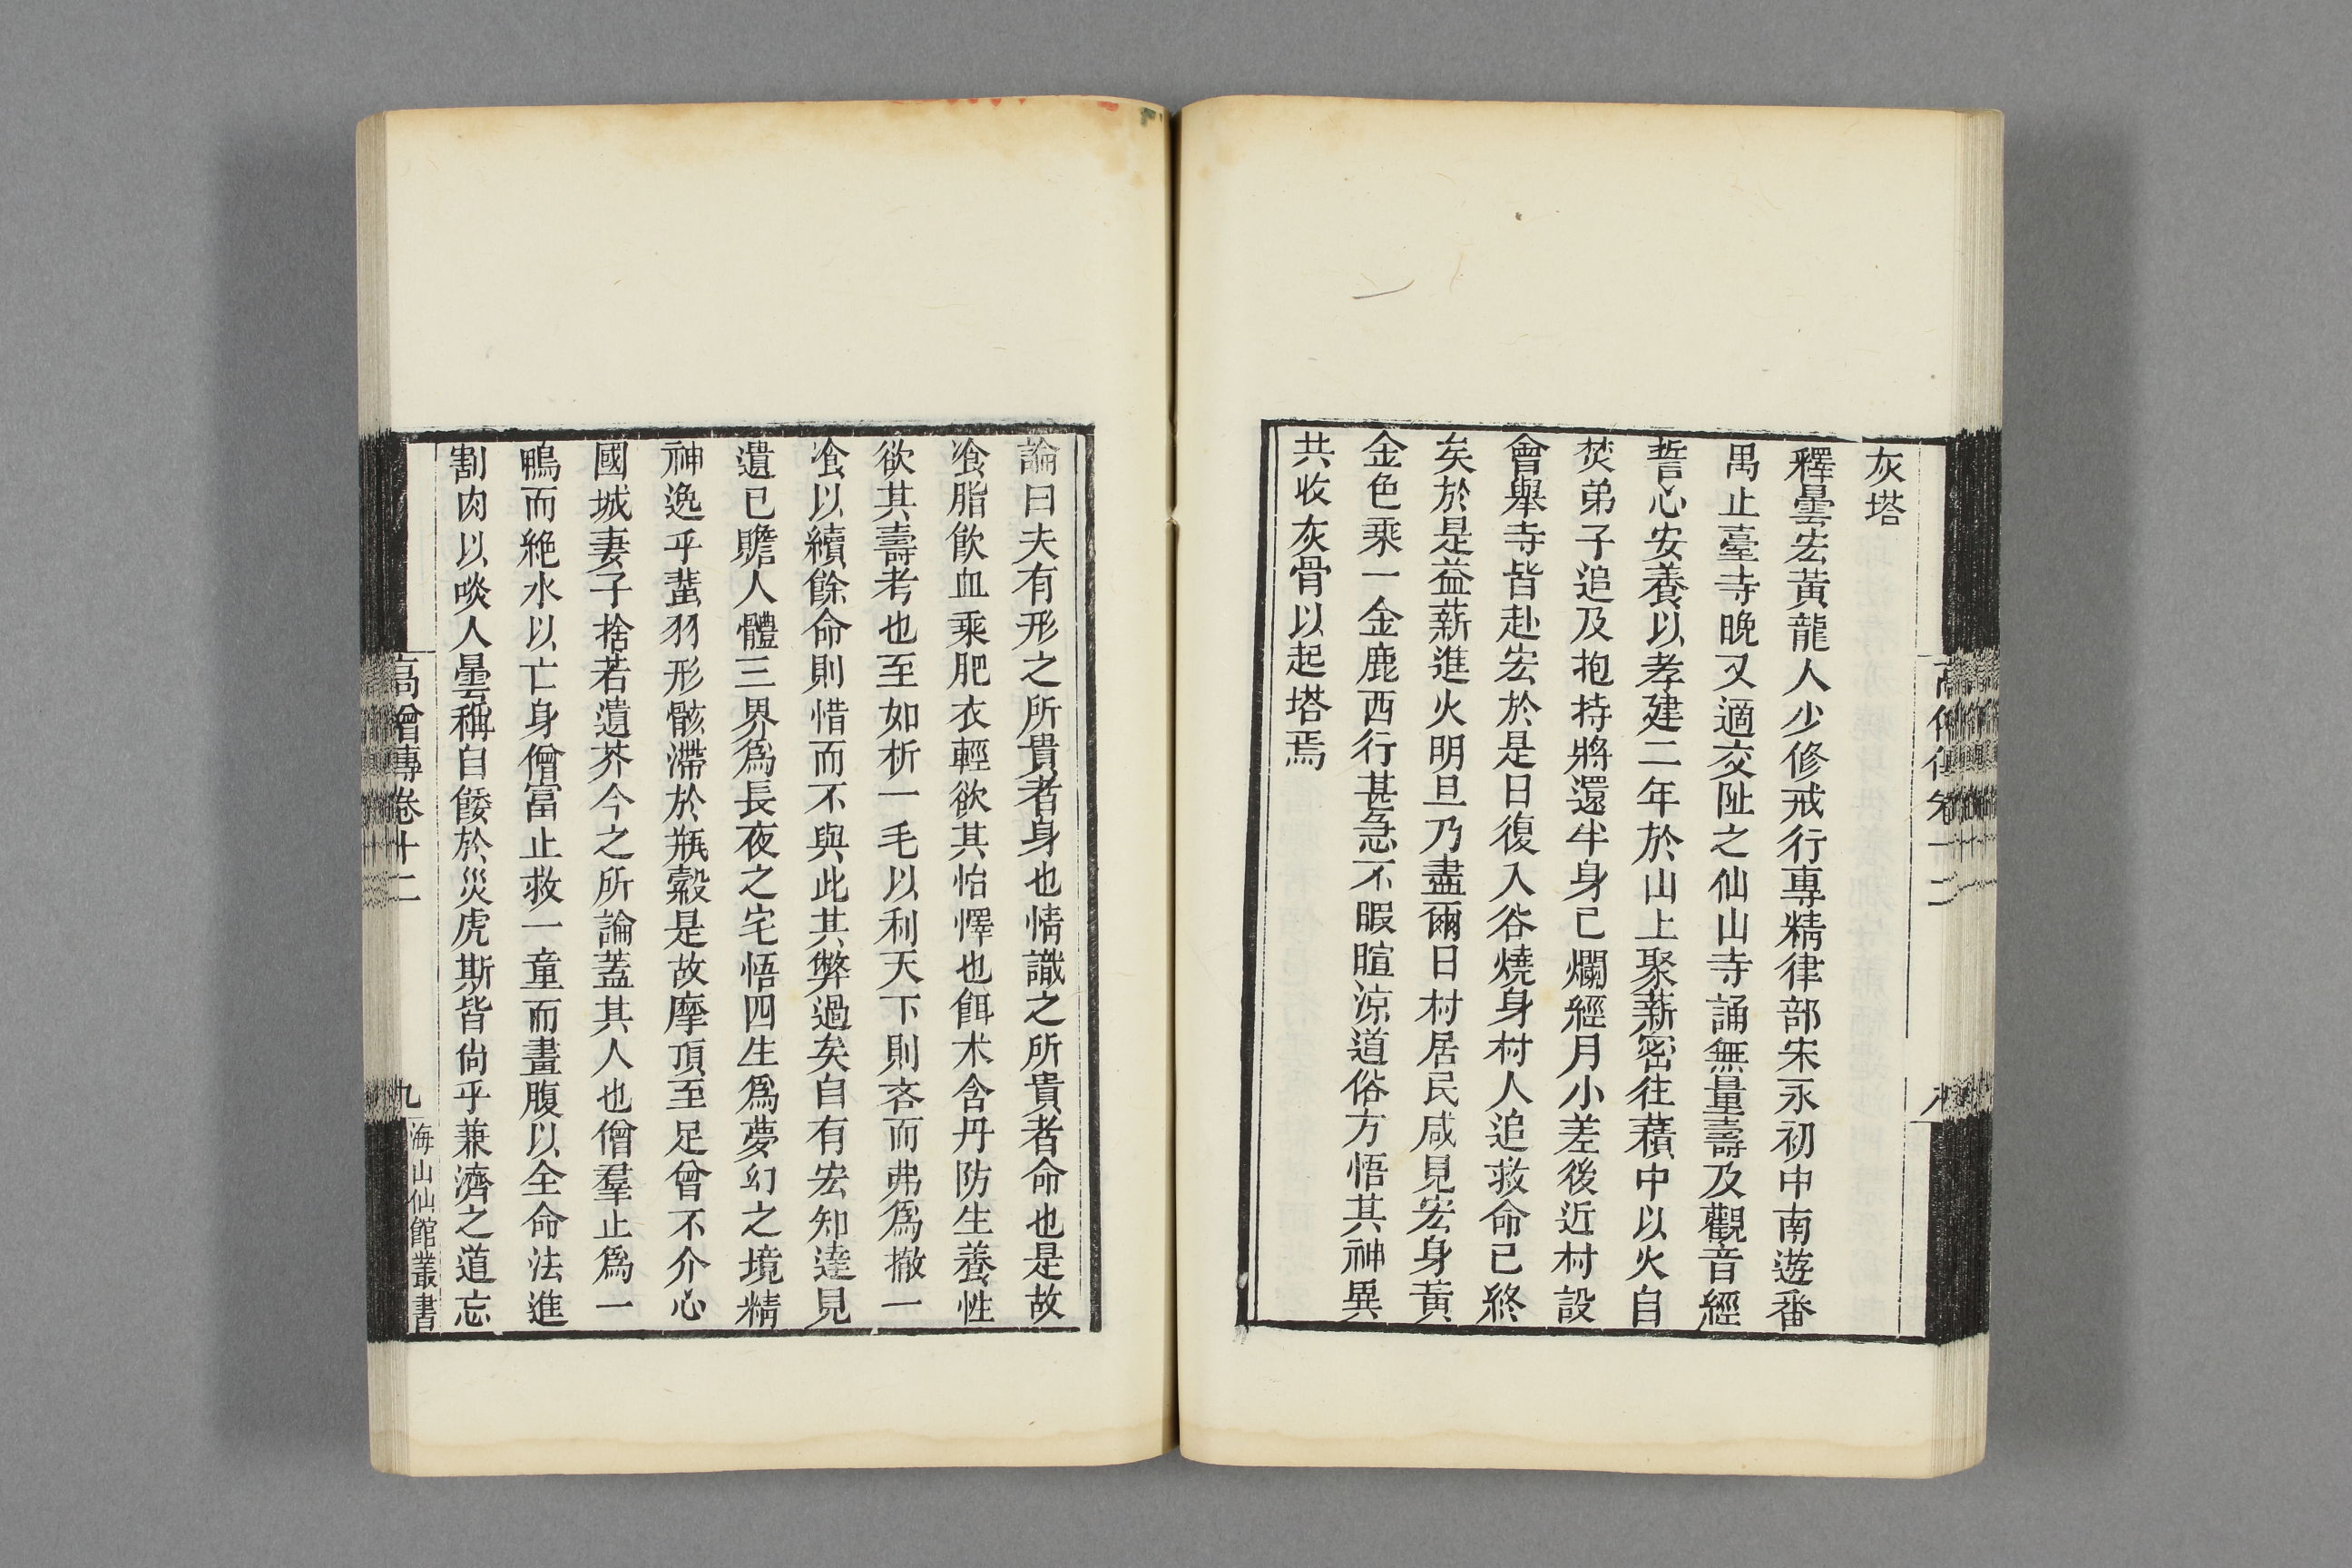 灰塔
釋曇宏黃龍人少修戒行專精律部宋永初中南遊番
禺止臺寺晚又適交阯之仙山寺誦無量壽及觀音經
誓心安養以孝建二年於山上聚薪密往䕪中以火自
焚弟子追及抱持將還半身已爛經月小差後近村設
會舉寺皆赴宏於是日復入谷燒身村人追救命已終
矣於是益薪進火明旦乃盡爾日村居民咸見宏身黃
金色乘一金鹿西行甚急不暇暄涼道俗方悟其神異
共收灰骨以起塔焉
論曰夫有形之所貴者身也情識之所貴者命也是故
飡脂飲血乘肥衣輕欲其怡懌也餌术含丹防生養性
欲其壽考也至如析一毛以利天下則吝而弗爲撤一
飡以續餘命則惜而不與此其弊過矣自有宏知達見
遺已贍人體三界爲長夜之宅悟四生爲夢幻之境精
神逸乎蜚羽形骸滯於瓶榖是故摩頂至足曾不介心
國城妻子捨若遺芥今之所論蓋其人也僧羣止爲一
鴨而絶水以亡身僧富止救一童而畫腹以全命法進
割肉以啖人曇稱自餧於災虎斯皆尙乎兼濟之道忘
高僧傳卷十二
九
海山仙館叢書